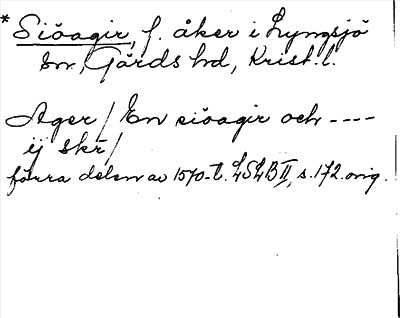 *Siöagir, f. åker i Lyngsjö
sn, Gärds hd, Krist. l.
Ager / En siöagir och ----
ij skr /
förra delen av 1570-t. LSLB II, s. 172. orig.